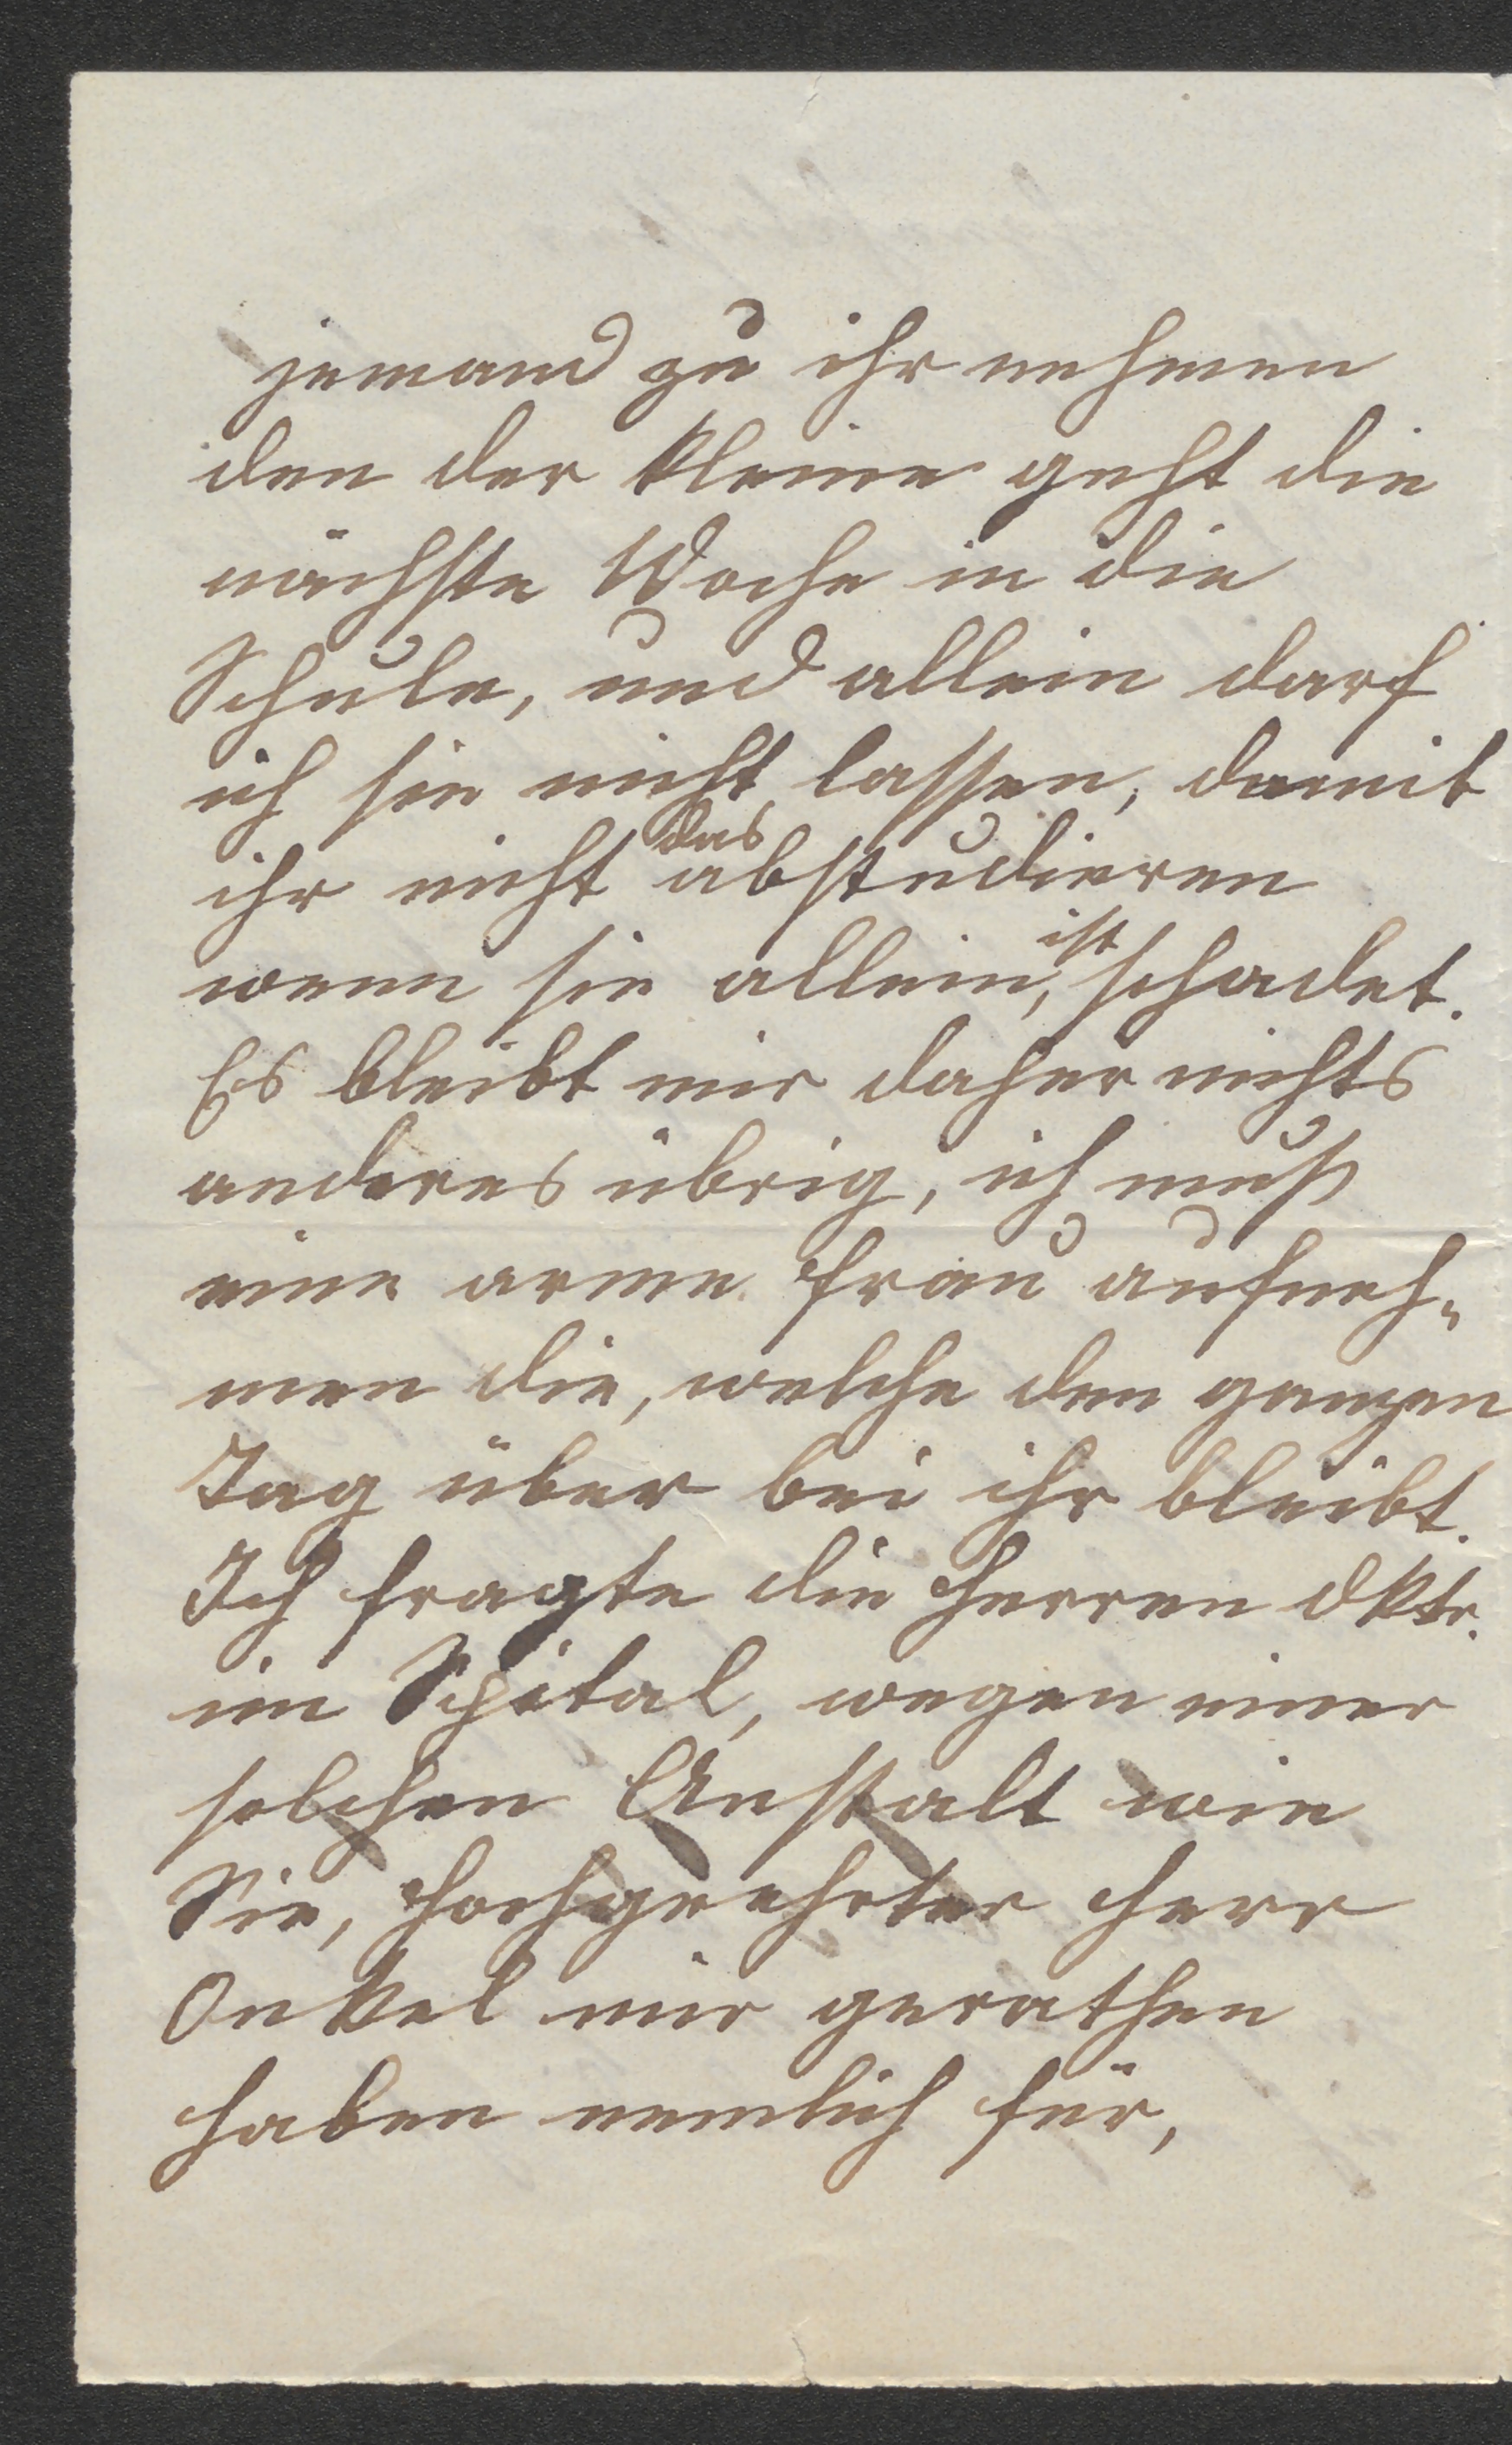 jemand zu ihr nehmen
den der Kleine geht die
nächste Woche in die
Schule, und allein darf
ich sie nicht lassen, damit
ihr nicht das abstudieren
wenn sie allein, ist schadet.
Es bleibt mir daher nichts
anderes übrig, ich muß
eine arme Frau aufneh-
men die, welche den ganzen
Tag über bei ihr bleibt.
Ich fragte die Herren Dktr.
im Spital, wegen einer
solchen Anstalt wie
Sie, Hochgeehrter Herr
Onkel mir gerathen
haben nemlich für,